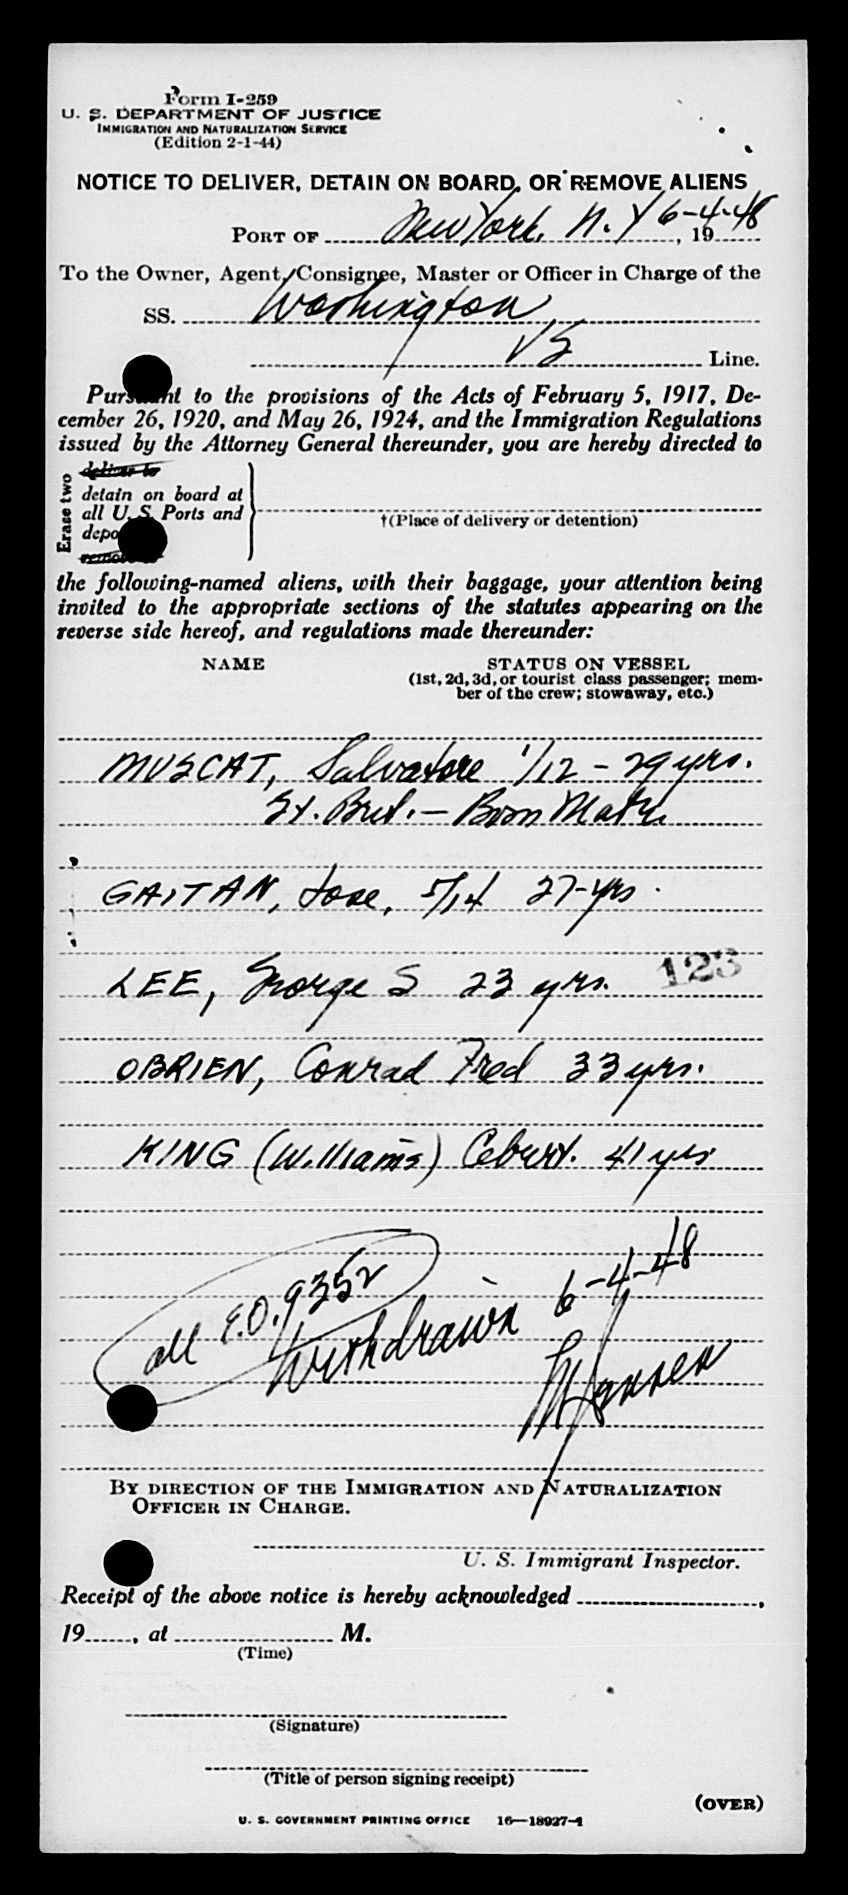 Form I-259
U. S. DEPARTMENT OF JUSTICE
IMMIGRATION AND NATURALIZATION SERVICE
(Edition 2-1-44)
NOTICE TO DELIVER, DETAIN ON BOARD, OR REMOVE ALIENS
PORT OF New York, N.Y 6-4-48, 19
To the Owner, Agent, Consignee, Master or Officer in Charge of the
SS. Washington
US Line.
Pursuant to the provisions of the Acts of February 5, 1917, De-
cember 26, 1920, and May 26, 1924, and the Immigration Regulations
issued by the Attorney General thereunder, you are hereby directed to
Erase two
deliver to
detain on board at
all U. S. Ports and
depo
remove
†(Place of delivery or detention)
the following-named aliens, with their baggage, your attention being
invited to the appropriate sections of the statutes appearing on the
reverse side hereof, and regulations made thereunder:
NAME STATUS ON VESSEL
(1st, 2d, 3d, or tourist class passenger; mem-
ber of the crew; stowaway, etc.)
MUSCAT, Salvatore 1/12 - 29 yrs.
St. Brit. - Born Malta
GAITAN, Jose, 5/14 27-yrs.
LEE, George S 23 yrs. 123
OBRIEN, Conrad Fred 33 yrs.
KING (Williams) 41 yrs
all E.O. 9352
Withdrawn 6-4-48
BY DIRECTION OF THE IMMIGRATION AND NATURALIZATION
OFFICER IN CHARGE.
U. S. Immigrant Inspector.
Receipt of the above notice is hereby acknowledged
19, at M.
(Time)
(Signature)
(Title of person signing receipt)
(OVER)
U. S. GOVERNMENT PRINTING OFFICE 16—18927-1